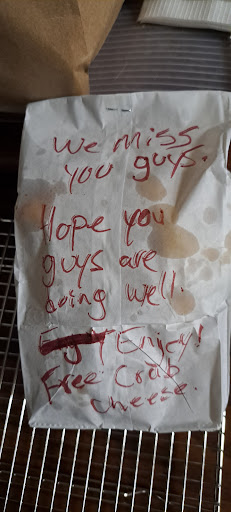 We miss
you guys.
Hope you
guys are
doing well.
Enjoy!
Free Crab
cheese.